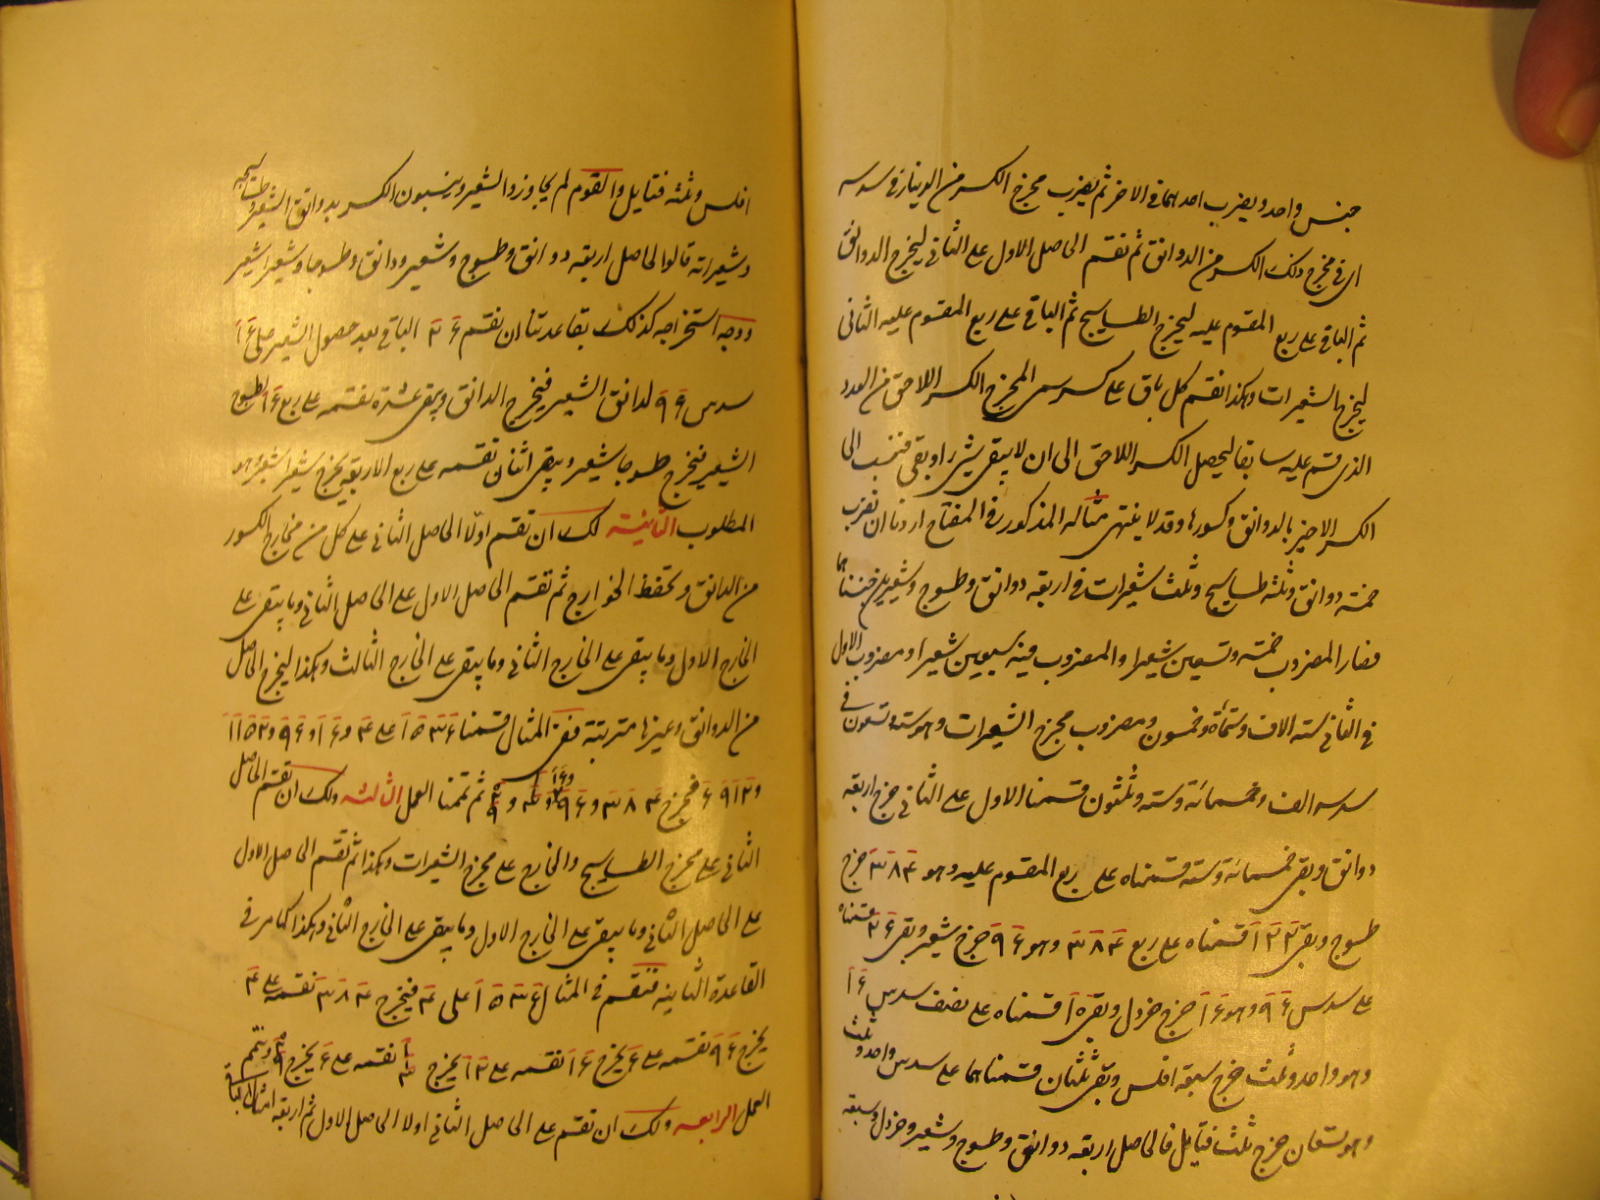 جنس واحد ويضرب احدهما في الاخر ثم يضرب مخرج الكسر من الدينار في سدسه
اى في مخرج ذلك الكسر من الدوانق ثم تقسم الحاصل الاول على الثاني ليخرج الدوانق
ثم الباقى على ربع المقسوم عليه ليخرج الطساسيج ثم الباقى على ربع المقسوم عليه الثانى
ليخرج الشعيرات وهكذا نقسم كل باق على كسر سمى المخرج الكسر اللاحق من العدد
الذى قسم عليه سابقا ليحصل الكسر اللاحق الى ان لا يبقى شئ او بقى فننسب الى
الكسر الاخير بالدوانق وكسورها وقد لا ينتهى مثاله المذكور في المفتاح اردنا ان نضرب
خمسة دوانق وثلثة طساسيج وثلث شعيرات في اربعة دوانق وطسوج وشعيرين جنسناهما
فصار المضروب خمسة وتسعين شعيرا والمضروب فيه سبعين شعيرا ومضروب الاول
في الثاني ستة الاف وستمائة وخمسون ومضروب مخرج الشعيرات وهو ستة وتسعون في
سدسه الف وخمسمائة وستة وثلثون قسمنا الاول على الثاني خرج اربعة
دوانق وبقى خمسمائة وستة قسمناه على ربع المقسوم عليه وهو ٣٨٤ خرج
طسوج وبقى ١٢٢ قسمناه على ربع ٣٨٤ وهو ٩٦ خرج شعير وبقى ٢٦ قسمناه
على سدس ٩٦ وهو ١٦ خرج خردل وبقى ١٠ قسمناه على نصف سدس ١٦
وهو واحد وثلث خرج سبعة افلس وبقى ثلثان قسمناهما على سدس واحد وثلث
وهو تسعان خرج ثلث فتايل فالحاصل اربعة دوانق وطسوج وشعير وخردل وسبعة
افلس وثلثة فتايل والقوم لم يجاوزوا الشعير وينسبون الكسر بدوانق الشعير وطساسيجه
وشعيراته قالوا الحاصل اربعة دوانق وطسوج وشعير ودانق وطسوجا وشعيرا شعير
ووجه استخراجه كذلك بقاعدتنا ان نقسم ٢٦ الباقى بعد حصول الشعير على ١٦
سدس ٩٦ لدانق الشعير فيخرج الدانق ويبقى عشرة نقسمه على ربع ١٦ لطسوج
الشعير فيخرج طسوجا شعير ويبقى اثنان نقسمه على ربع الاربعة يخرج شعيرا شعير وهو
المطلوب الثانية لك ان تقسم اولا الحاصل الثاني على كل من مخارج الكسور
من الدانق وتحفظ الخوارج ثم تقسم الحاصل الاول على الحاصل الثاني وما يبقى على
الخارج الاول وما يبقى على الخارج الثاني وما يبقى على الخارج الثالث وهكذا ليخرج الحاصل
من الدوانق وغيرها مترتبة ففي المثال قسمنا ١٥٣٦ على ٤ و١٦ و٩٦ و١١٥٢
و٦٩١٢ فخرج ٣٨٤ و٩٦ و١٦ ثم تممنا العمل الثالثة ولك ان تقسم الحاصل
الثاني على مخرج الطساسيج والخارج على مخرج الشعيرات وهكذا ثم تقسم الحاصل الاول
على الحاصل الثاني وما يبقى على الخارج الاول وما يبقى على الخارج الثاني وهكذا كما مر في
القاعدة الثانية فنقسم في المثال ١٥٣٦ على ٤ فيخرج ٣٨٤ نقسمه على ٤
يخرج ٩٦ نقسمه على ٦ يخرج ١٦ نقسمه على ١٢ يخرج نقسمه على ٦ يخرج وتتمم
العمل الرابعة ولك ان تقسم على الحاصل الثاني اولا الحاصل الاول ثم اربعة امثال الباقى